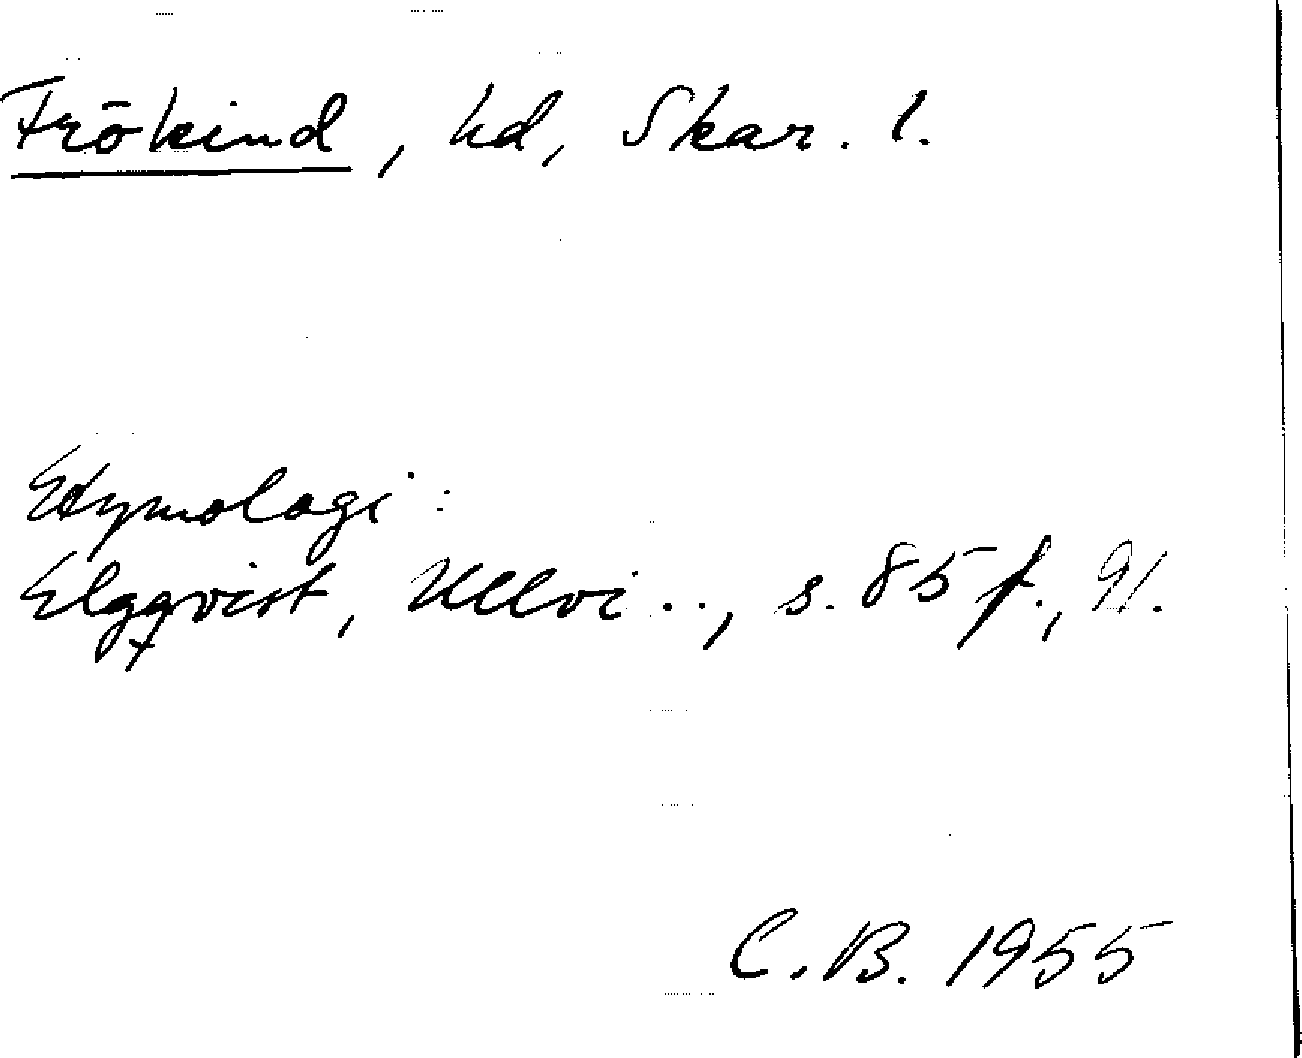 Frökind, hd, Skar. l.
Etymologi:
Elgqvist, Ullvi.., s. 85 f., 91.
C.B. 1955